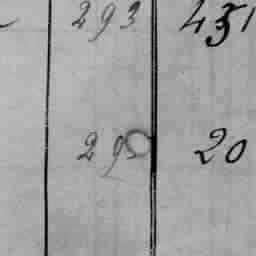 293 451
295 20